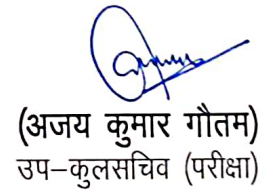 (अजय कुमार गौतम)
उप-कुलसचिव (परीक्षा)